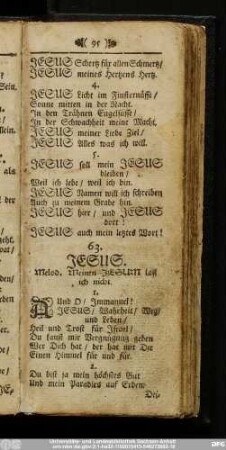 95
JESUS Schertz für allen Schmertz/
JESUS meines Hertzens Hertz.
4.
JESUS Licht im Finsternüsse/
Sonne mitten in der Nacht.
In den Trähnen Engelsüsse/
In der Schwachheit meine Macht.
JESUS meiner Liebe Ziel/
JESUS Alles was ich will.
5.
JESUS soll mein JESUS
bleiben/
Weil ich lebe/ weil ich bin.
JESUS Namen will ich schreiben
Auch zu meinem Grabe hin.
JESUS hier/ und JESUS
dort!
JESUS auch mein letztes Wort!
63.
JESUS.
Melod. Meinen JESUM laß
ich nicht.
1.
A Und O/ Immanuel!
JESUS/ Wahrheit/ Weg/
und Leben/
Heil und Trost für Israel/
Du kanst mir Vergnügung geben
Wer Dich hat/ der hat mit Dir
Einen Himmel für und für.
2.
Du bist ja mein höchstes Gut
Und mein Paradies auf Erden
Dei-